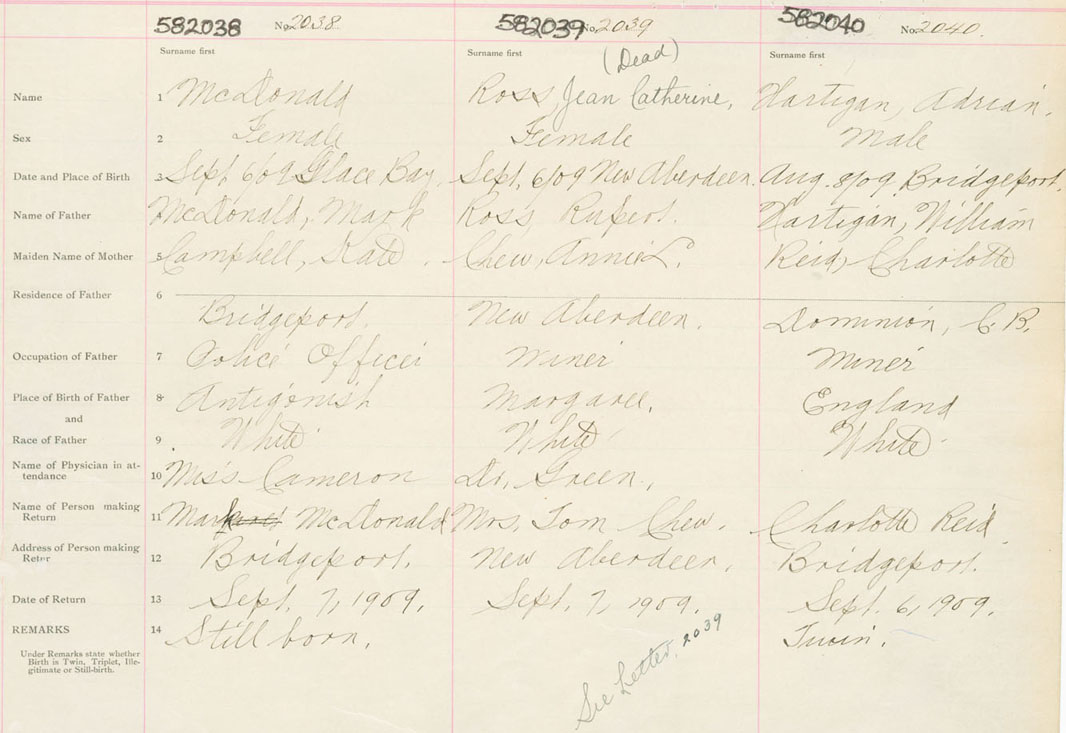 582038 No. 2038. 582039 No. 2039 582040 No. 2040.
Surname first Surname first (Dead) Surname first
Name 1 McDonald Ross, Jean Catherine. Hartigan, Adrian.
Sex 2 Female Female Male
Date and Place of Birth 3 Sept 6/09 Glace Bay. Sept. 6/09 New Aberdeen. Aug. 8/09 Bridgeport.
Name of Father McDonald, Mark Ross Rupert. Hartigan, William
Maiden Name of Mother 5 Campbell, Kate. Chew, Annie L. Reid, Charlotte
Residence of Father 6
Bridgeport. New Aberdeen. Dominion, C.B.
Occupation of Father 7 Police Officer Miner Miner
Place of Birth of Father 8 Antigonish Margaree. England
and
Race of Father 9 White White White
Name of Physician in at-
tendance 10 Miss Cameron Dr. Green.
Name of Person making
Return 11 Mark McDonald Mrs. Tom Chew. Charlotte Reid
Address of Person making
Reter 12 Bridgeport. New Aberdeen. Bridgeport.
Date of Return 13 Sept. 7, 1909. Sept. 7, 1909. Sept. 6, 1909.
REMARKS 14 Still born. Twin.
Under Remarks state whether
Birth is Twin, Triplet, Ille-
gitimate or Still-birth.
See Letter, 2039